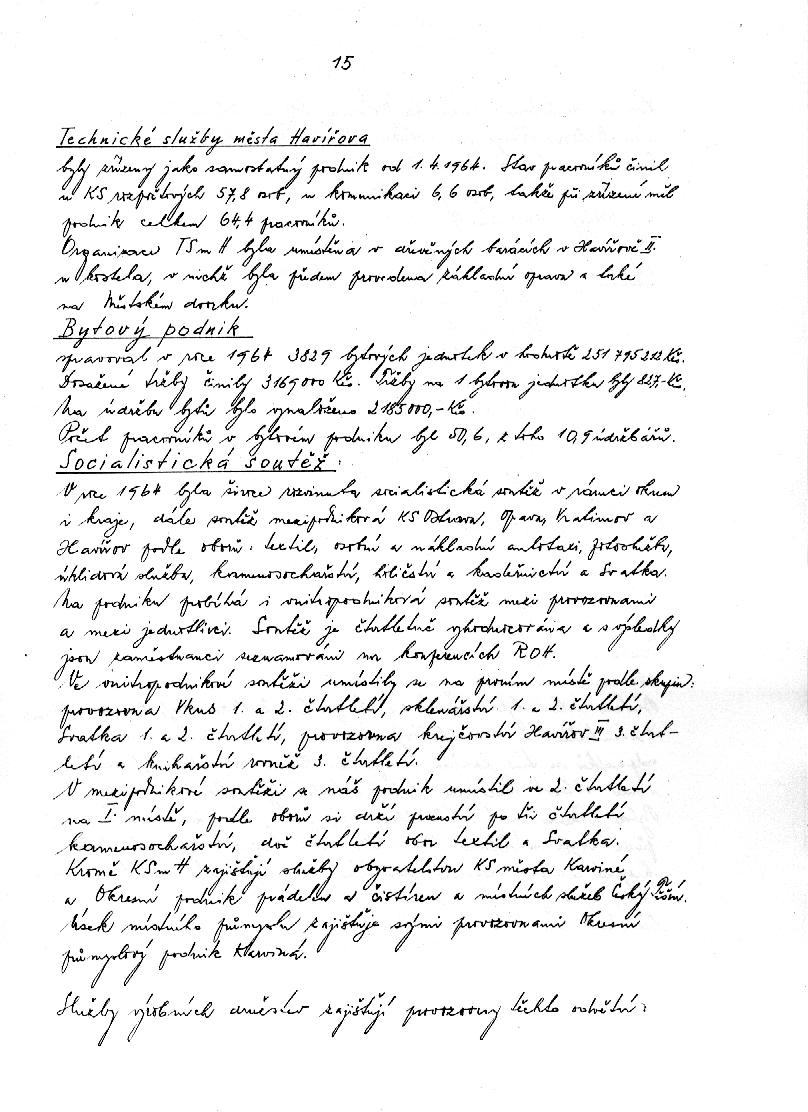 15
Technické služby města Havířova
byly zřízeny jako samostatný podnik od 1.4.1964. Stav pracovníků činil
u KS rozpočtových 57,8 osob, u komunikací 6,6 osob, takže při zřízení měl
podnik celkem 64,4 pracovníků.
Organizace TSmH byla umístěna v dřevěných barácích v Havířově II.
u kostela, v nichž byla předem provedena základní oprava a také
na Městském dvorku.
Bytový podnik
spravoval v roce 1964 3829 bytových jednotek v hodnotě 251 795 212 Kčs.
Dosažené tržby činily 3169000 Kčs. Tržby na 1 bytovou jednotku byly 827,- Kčs.
Na údržbu bytů bylo vynaloženo 2185000,- Kčs.
Počet pracovníků v bytovém podniku byl 50,6, z toho 10,9 údržbářů.
Socialistická soutěž.
V roce 1964 byla široce rozvinuta socialistická soutěž v rámci okresu
i kraje, dále soutěž mezipodniková KS Ostrava, Opava, Vratimov a
Havířov podle oborů: textil, osobní a nákladní autotaxi, fotoslužba,
úklidová služba, kamenosochařství, holičství a kadeřnictví a Svatka.
Na podniku probíhá i vnitropodniková soutěž mezi provozovnami
a mezi jednotlivci. Soutěž je čtvrtletně vyhodnocována a s výsledky
jsou zaměstnanci seznamováni na konferencích ROH.
Ve vnitropodnikové soutěži umístily se na prvním místě podle skupin:
provozovna Vkus 1. a 2. čtvrtletí, sklenářství 1. a 2. čtvrtletí,
Svatka 1. a 2. čtvrtletí, provozovna krejčovství Havířov III 3. čtvrt-
letí a knihařství rovněž 3. čtvrtletí.
V mezipodnikové soutěži se náš podnik umístil ve 2. čtvrtletí
na I. místě, podle oborů si drží prvenství po tři čtvrtletí
kamenosochařství, dvě čtvrtletí obor textil a Svatka.
Kromě KSmH zajišťují služby obyvatelstvu KS města Karviné
a Okresní podnik prádelen a čistíren a místních služeb Český Těšín.
Úsek místního průmyslu zajišťuje svými provozovnami Okresní
průmyslový podnik Karviná.
Služby výrobních družstev zajišťují provozovny těchto odvětví: